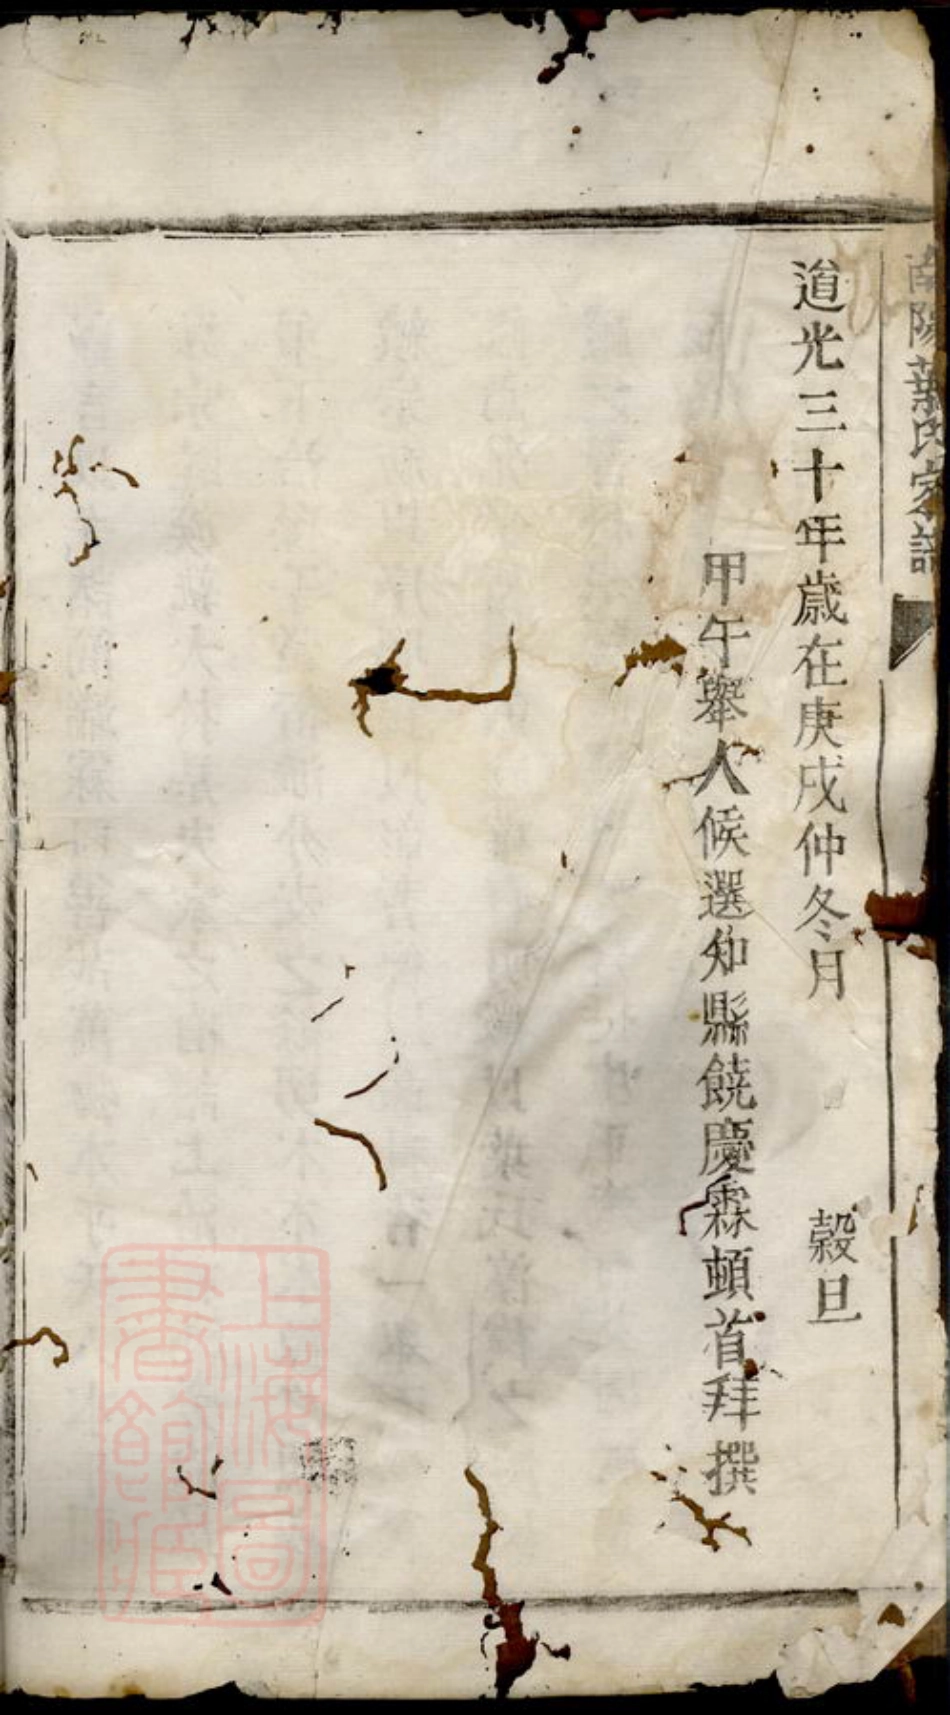 南陽葉氏家譜
道光三十年歲在庚戌仲冬月 穀旦
甲午舉人候選知縣饒慶霖頓首拜撰
上海圖書館藏